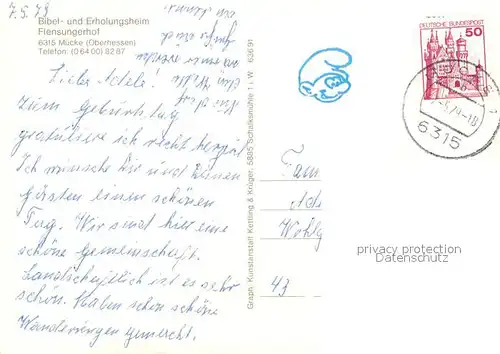 7.5.79
Bibel- und Erholungsheim
Flensungerhof
6315 Mücke (Oberhessen)
Telefon: (0 64 00) 82 87
Zum Geburtstag
gratuliere ich recht herzl.
Ich wünsche Dir und Deinen
Gästen einen schönen
Tag. Wir sind hier eine
schöne Gemeinschaft.
Landschaftlich ist es sehr
schön. Haben schon schöne
Wanderungen gemacht.
Graph. Kunstanstalt Kettling & Krüger, 5885 Schalksmühle 1 i.W. 636 91
DEUTSCHE BUNDESPOST
50
6315
Fam
Wohlg
43
privacy protection
Datenschutz